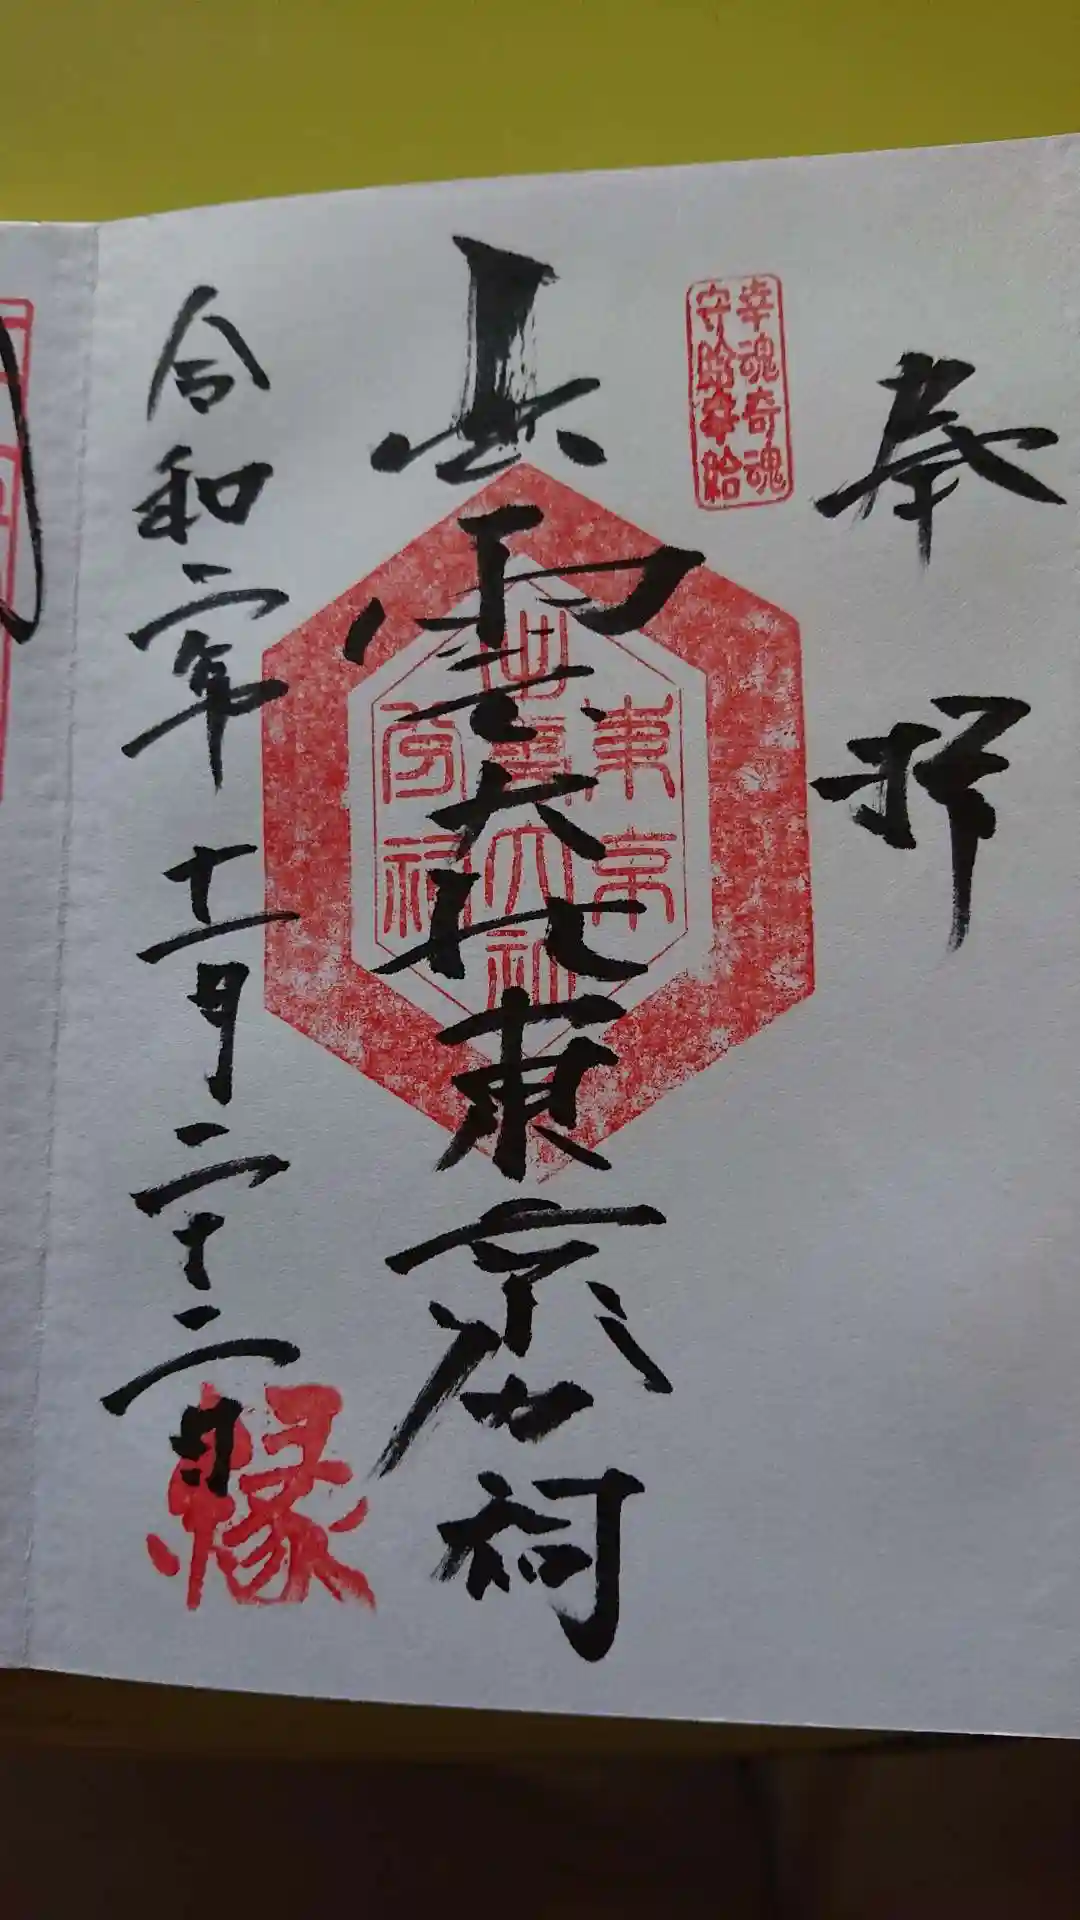 奉拝
幸魂奇魂
守給幸給
出雲大社東京分祠
東京
出雲大社
分祠
令和二年十一月二十二日
縁